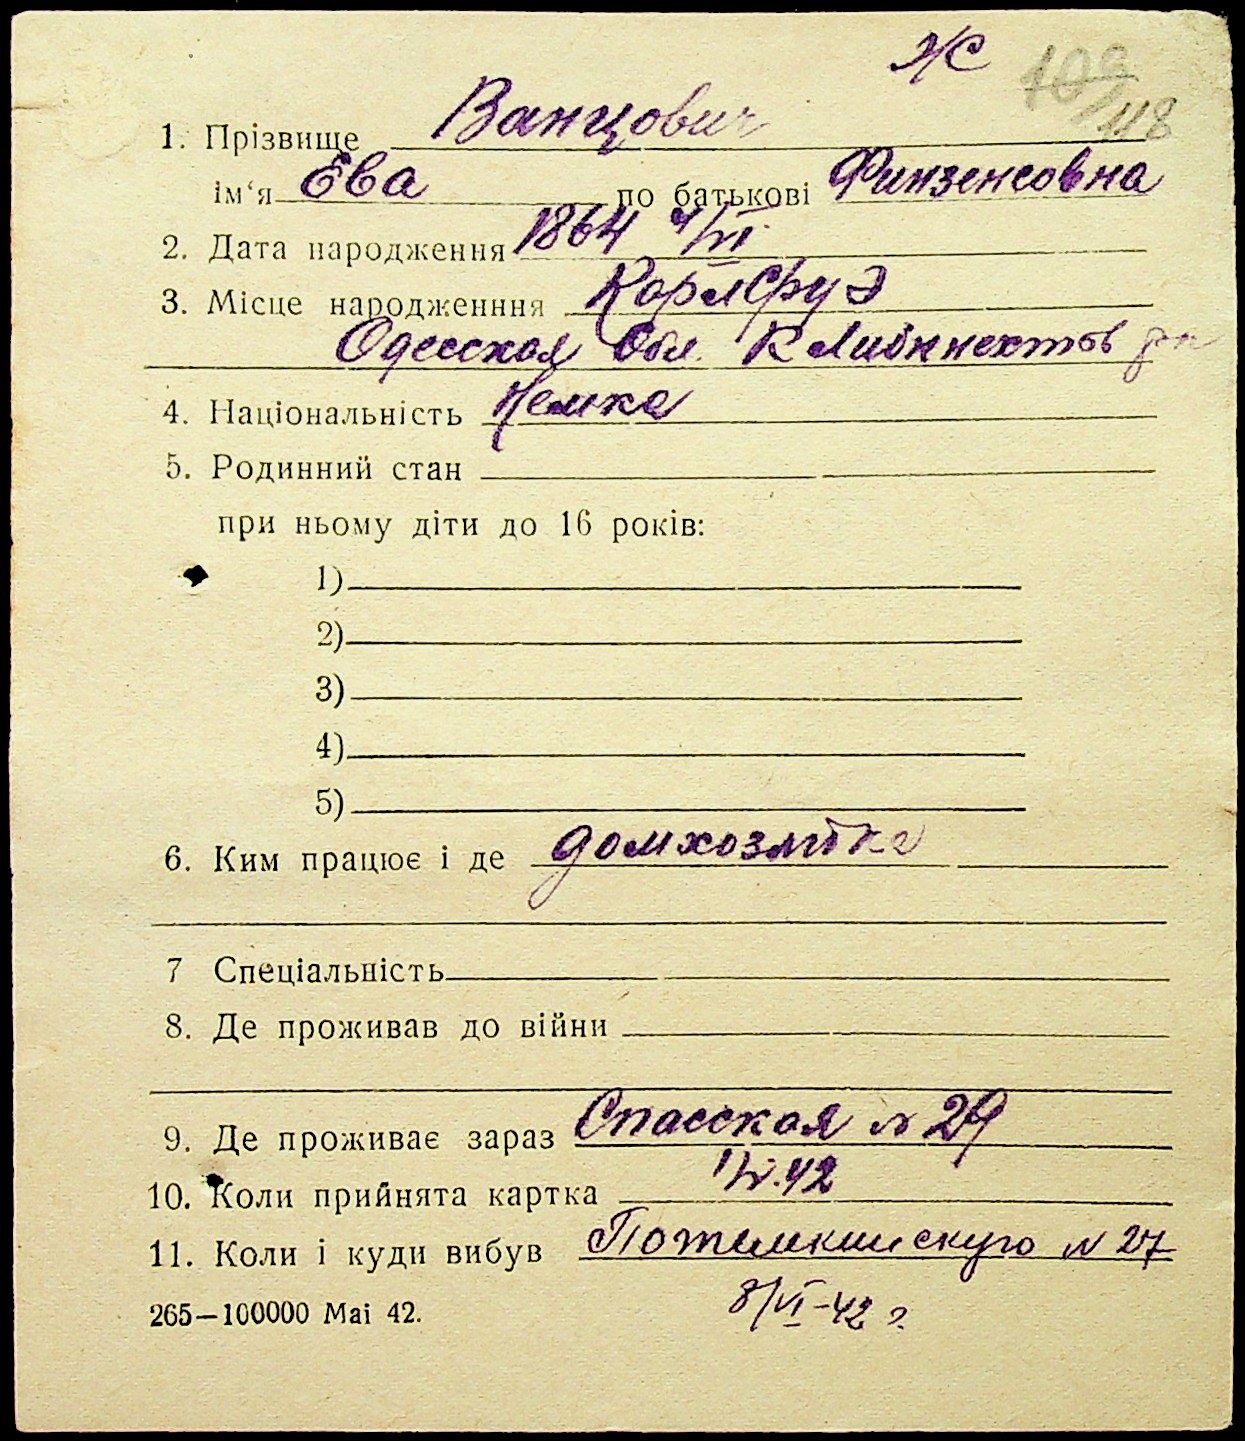 Ж
118
1. Прізвище Ванцович
ім‘я Ева по батькові Финзенсовна
2. Дата народження 1864 4/VI
3. Місце народженння Карлсруэ
Одесская Обл. К Либкнехтов р-н
4. Національність Немка
5. Родинний стан
при ньому діти до 16 років:
1)
2)
3)
4)
5)
6. Ким працює і де домхозяйка
7 Спеціальність
8. Де проживав до війни
9. Де проживає зараз Спасская № 29
10. Коли прийнята картка
11. Коли і куди вибув Потемкинскую № 27
8/VI-42 г.
265—100000 Mai 42.